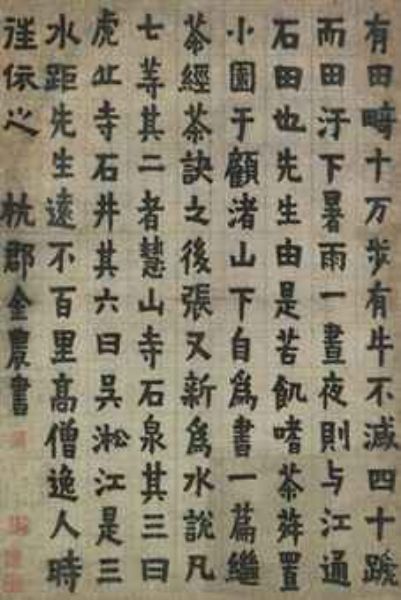 有田畸十万步有牛不減四十蹏
而田汙下暑雨一晝夜則与江通
石田也先生由是苦飢嗜茶荈置
小園于顧渚山下自為書一篇繼
茶經茶訣之後張又新為水說凡
七等其二者慧山寺石泉其三曰
虎丘寺石井其六曰吳淞江是三
水距先生遠不百里高僧逸人時
徃依之 杭郡金農書